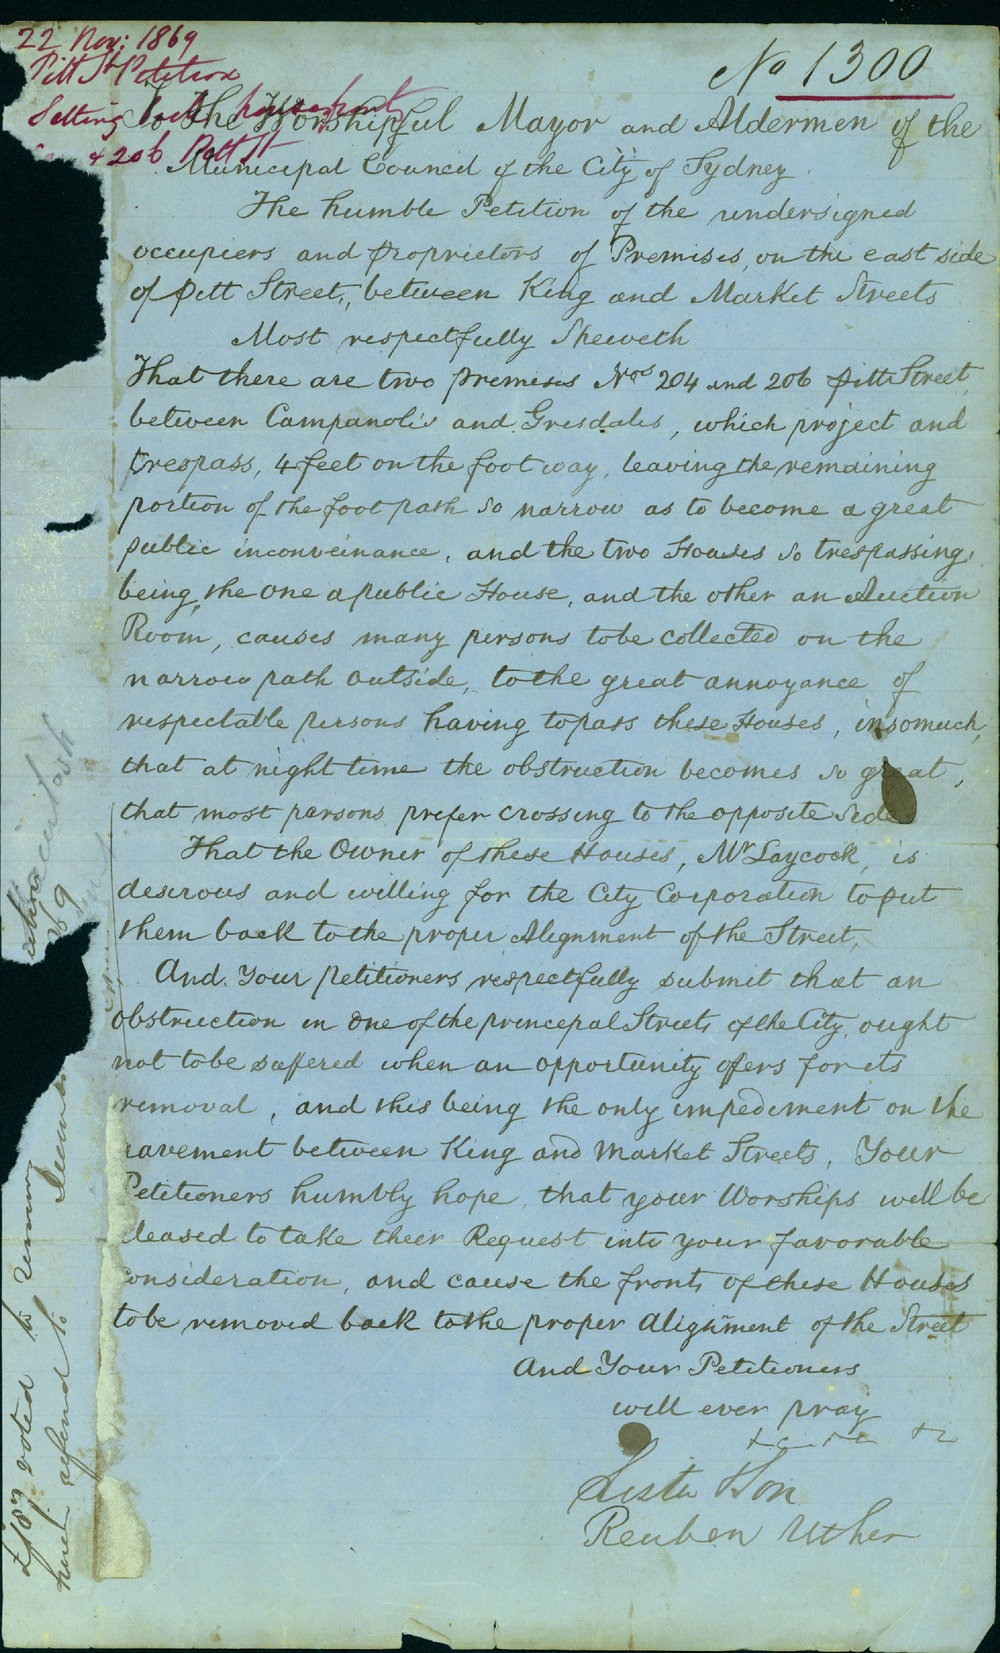 22 Nov: 1869
Pitt St Petition
Setting back house front
& 206 Pitt St
No 1300
To The Worshipful Mayor and Aldermen of the
Municipal Council of the City of Sydney.
The humble Petition of the undersigned
occupiers and proprietors of Premises, on the east side
of Pitt Street, between King and Market Streets
Most respectfully Sheweth
That there are two premises Nros 204 and 206 Pitt Street,
between Campanoli's and Grisdales, which project and
trespass, 4 feet on the foot way, leaving the remaining
portion of the foot path so narrow as to become a great
public inconveinance, and the two Houses so trespassing,
being, the one a public House, and the other an Auction
Room, causes many persons to be collected on the
narrow path outside, to the great annoyance of
respectable persons having to pass these Houses, insomuch,
that at night time the obstruction becomes so great,
that most persons prefer crossing to the opposite side
That the Owner of these Houses, Mr Laycock, is
desirous and willing for the City Corporation to put
them back to the proper Alignment of the Street,
And Your petitioners respectfully submit that an
obstruction in one of the principal Streets of the City, ought
not to be suffered when an opportunity offers for its
removal, and this being the only impediment on the
pavement between King and Market Streets, Your
Petitioners humbly hope, that your Worships will be
pleased to take their Request into your favorable
consideration, and cause the fronts of these Houses
to be removed back to the proper Alignment of the Street
And Your Petitioners
will ever pray
&c &c &c
Lister & Son
Reuben Uther
£187 voted to
here refered to